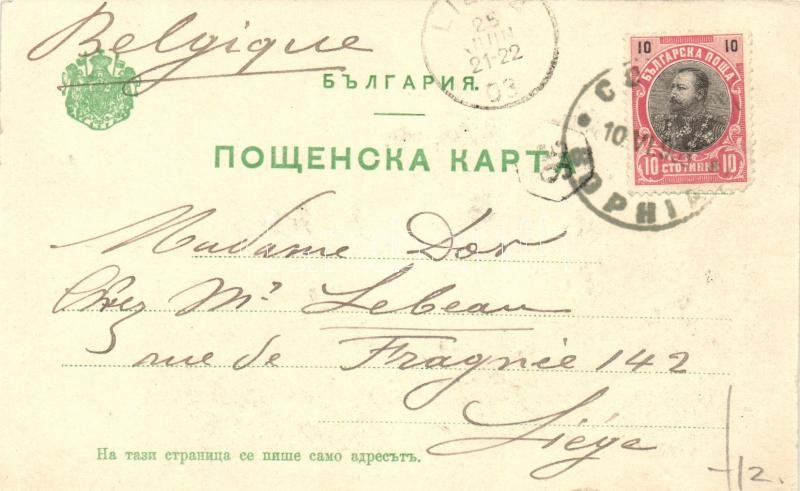 Belgique
25
JUIN
21-22
03
10 10
БЪЛГАРСКА ПОЩА
10 СТОТИНКИ 10
БЪЛГАРИЯ.
ПОЩЕНСКА КАРТА
10.VI
SOPHIA
Madame Dor
Chez Mr. Lebeau
rue de Fragnée 142
Liége
На тази страница се пише само адресътъ.
12.